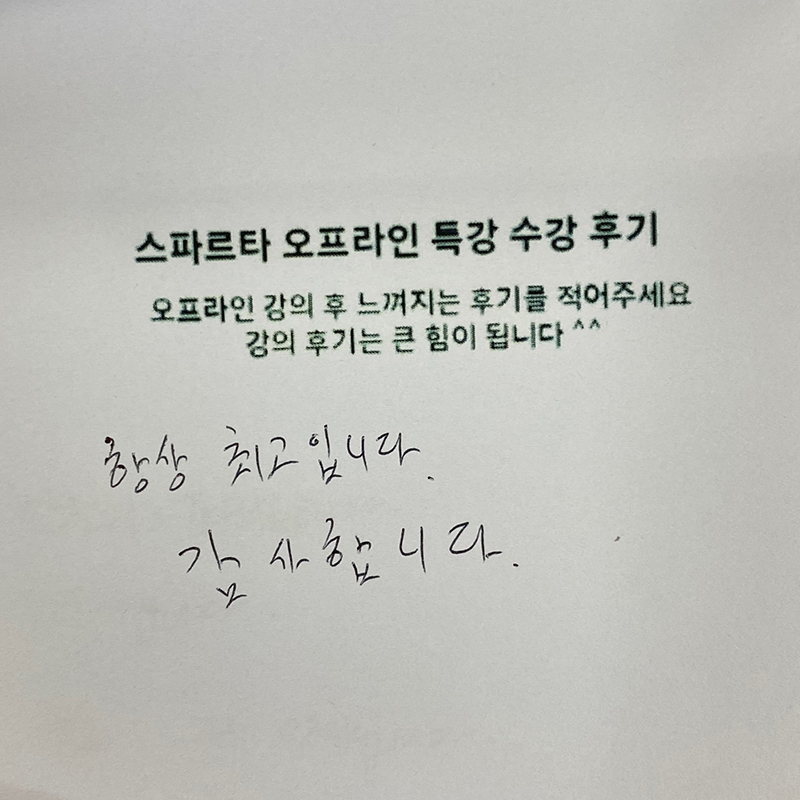 스파르타 오프라인 특강 수강 후기
오프라인 강의 후 느껴지는 후기를 적어주세요
강의 후기는 큰 힘이 됩니다 ^^
항상 최고입니다.
감사합니다.